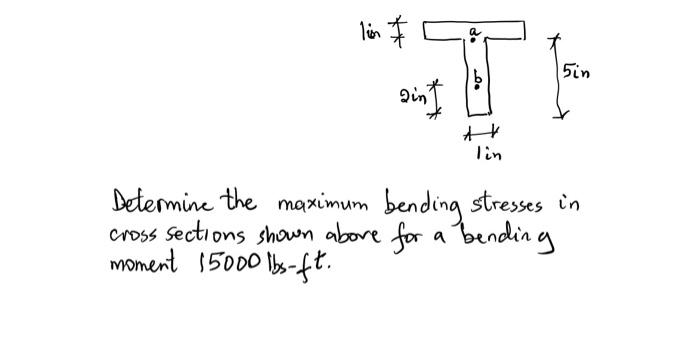 1in
a
5in
b
2in
1in
Determine the maximum bending stresses in
cross sections shown above for a bending
moment 15000 lbs-ft.